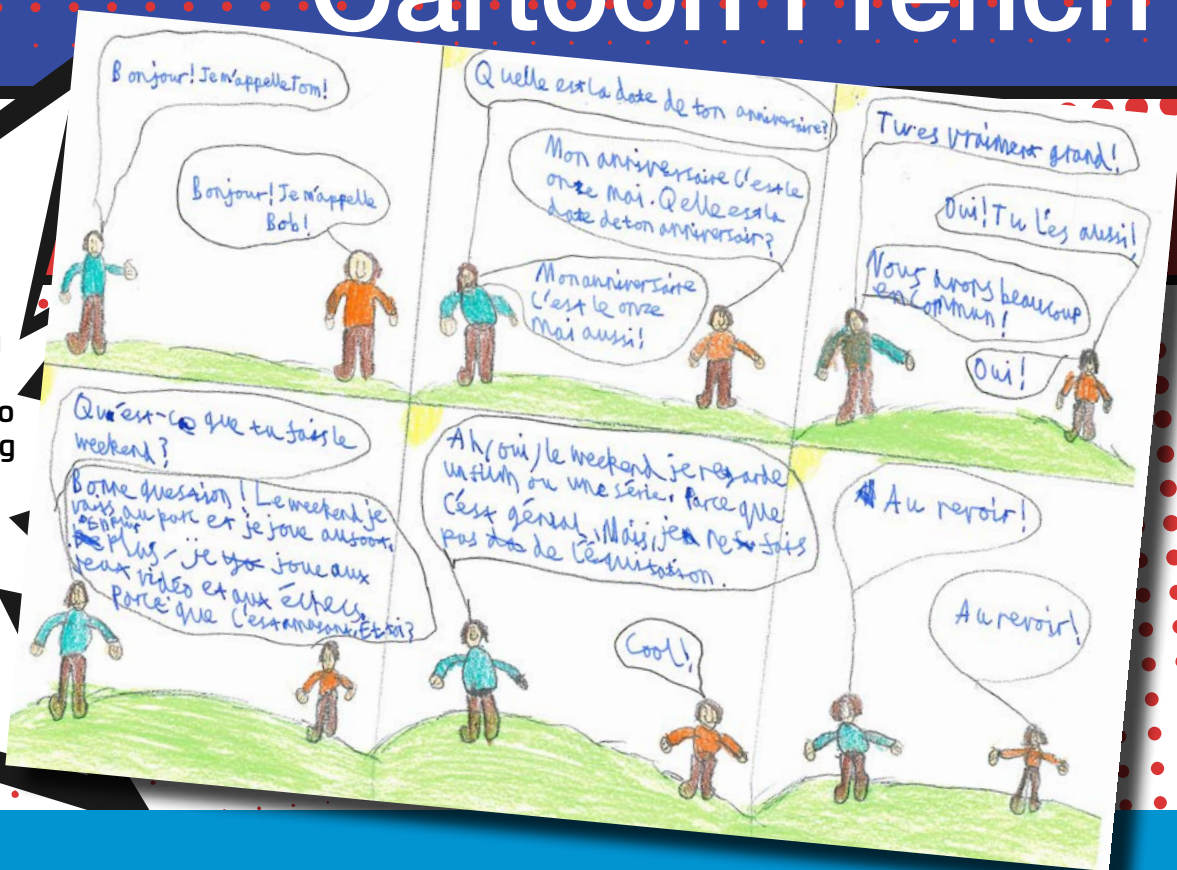 Cartoon French
Bonjour! Je m'appelle Tom!
Bonjour! Je m'appelle
Bob!
Quelle est la date de ton anniversaire?
Mon anniversaire c'est le
onze mai. Qelle est la
date de ton anniversair?
Mon anniversaire
c'est le onze
mai aussi!
Tu es vraiment grand!
Oui! Tu l'es aussi!
Nous avons beaucoup
en commun!
Oui!
o
g
Qu'est-ce que tu fais le
weekend?
Bonne question! Le weekend je
vais au parc et je joue au foot.
En plus, je joue aux
jeux vidéo et aux échecs.
Parce que c'est amusant. Et toi?
Ah, oui, le weekend je regarde
un film ou une série. Parce que
c'est génial. Mais, je ne fais
pas de l'équitation.
Cool!
Au revoir!
Au revoir!